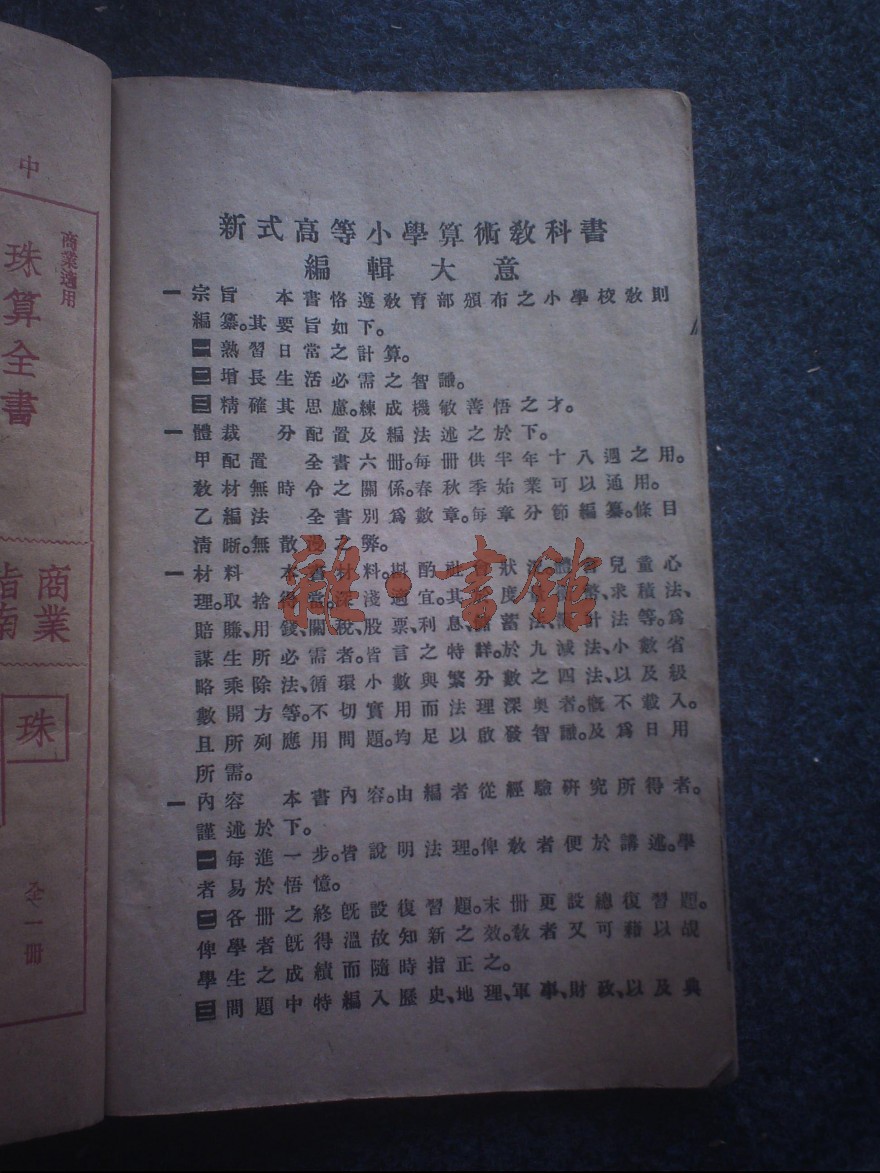 新式高等小學算術敎科書
編輯大意
一宗旨 本書恪遵敎育部頒布之小學校敎則
編纂。其要旨如下。
一熟習日常之計算。
二增長生活必需之智識。
三精確其思慮。練成機敏善悟之才。
一體裁 分配置及編法述之於下。
甲配置 全書六冊。每冊供半年十八週之用。
敎材無時令之關係。春秋季始業可以通用。
乙編法 全書別爲數章。每章分節編纂。條目
淸晰。無散漫之弊。
一材料 本書材料。斟酌社會狀況。體兒童心
理。取捨得當。深淺適宜。其度、求積法、
賠賺、用錢、關稅、股票、利息、蓄法、計法等。爲
謀生所必需者。皆言之特詳。於九減法、小數省
略乘除法、循環小數與繁分數之四法、以及級
數開方等。不切實用而法理深奧者。槪不載入。
且所列應用問題。均足以啟發智識。及爲日用
所需。
一內容 本書內容。由編者從經驗硏究所得者。
謹述於下。
一每進一步。皆說明法理。俾敎者便於講述。學
者易於悟憶。
二各冊之終旣設復習題。末冊更設總復習題。
俾學者旣得溫故知新之效。敎者又可藉以覘
學生之成績而隨時指正之。
三問題中特編入歷史、地理、軍事、財政、以及典
中
商業適用
珠算全書
商業
指南
珠
全一冊
雜·書館